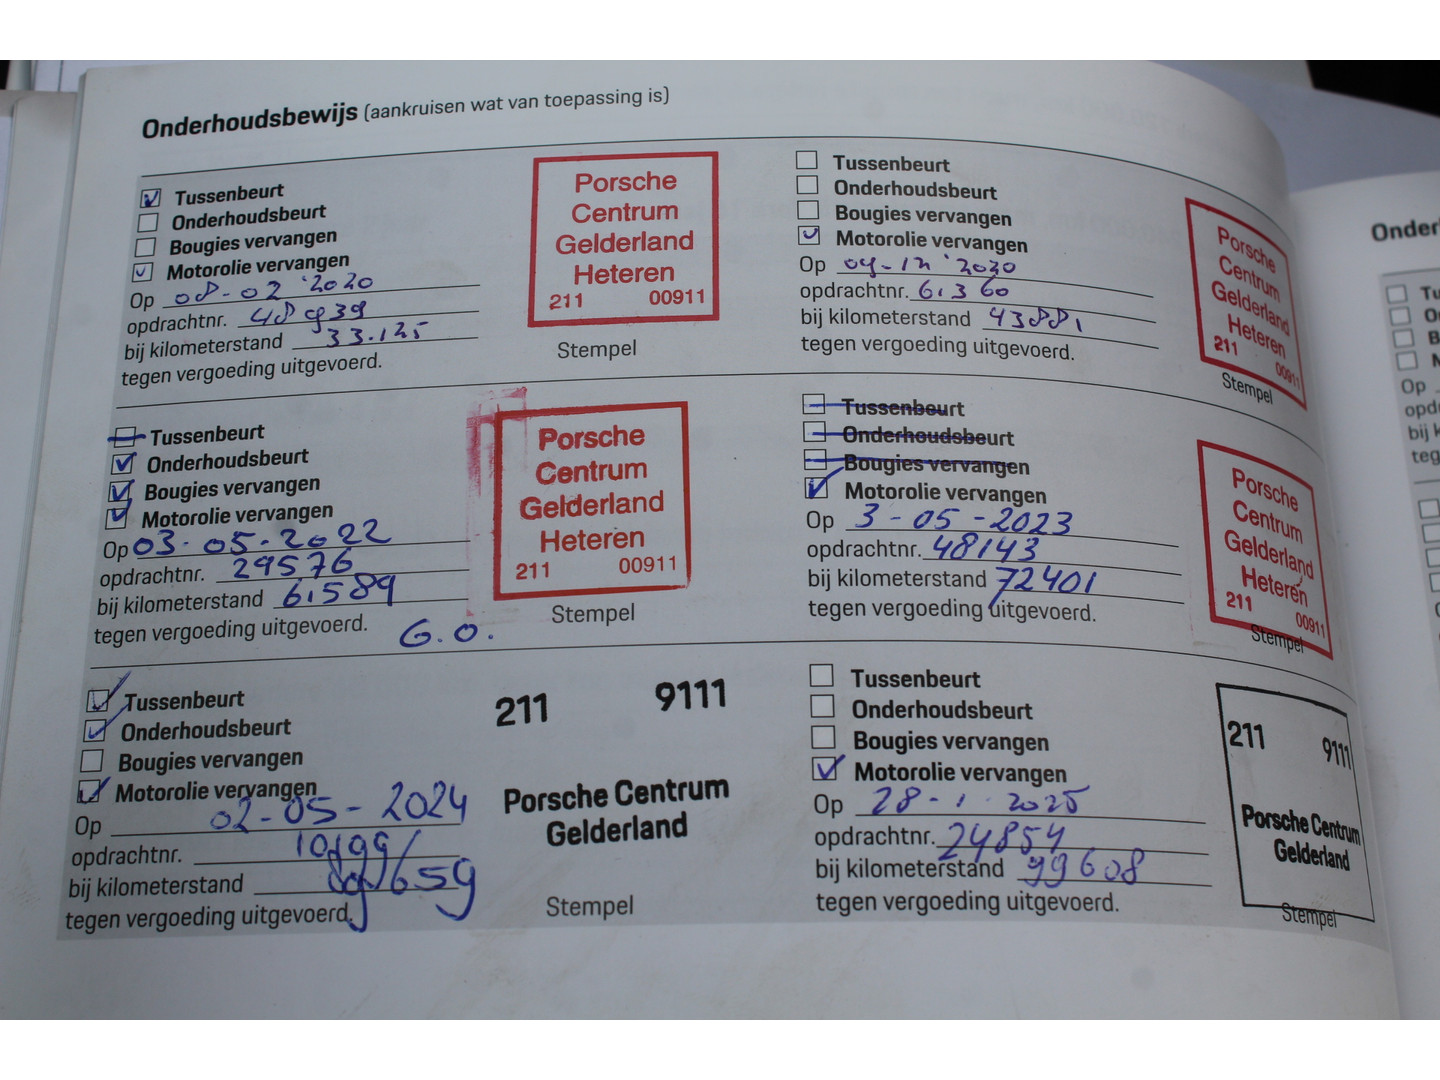 Onderhoudsbewijs (aankruisen wat van toepassing is)
Tussenbeurt
Onderhoudsbeurt
Bougies vervangen
Motorolie vervangen
Op 08-02 '2020
opdrachtnr. 48939
bij kilometerstand 33.125
tegen vergoeding uitgevoerd.
Porsche
Centrum
Gelderland
Heteren
211 00911
Stempel
Tussenbeurt
Onderhoudsbeurt
Bougies vervangen
Motorolie vervangen
Op 09-12 '2020
opdrachtnr. 61360
bij kilometerstand 43881
tegen vergoeding uitgevoerd.
Porsche
Centrum
Gelderland
Heteren
211 00911
Stempel
Tussenbeurt
Onderhoudsbeurt
Bougies vervangen
Motorolie vervangen
Op 03-05-2022
opdrachtnr. 29576
bij kilometerstand 61589
tegen vergoeding uitgevoerd.
G.O.
Porsche
Centrum
Gelderland
Heteren
211 00911
Stempel
Tussenbeurt
Onderhoudsbeurt
Bougies vervangen
Motorolie vervangen
Op 3-05-2023
opdrachtnr. 48143
bij kilometerstand 72401
tegen vergoeding uitgevoerd.
Porsche
Centrum
Gelderland
Heteren
211 00911
Stempel
Tussenbeurt
Onderhoudsbeurt
Bougies vervangen
Motorolie vervangen
Op 02-05-2024
opdrachtnr. 10199
bij kilometerstand 89659
tegen vergoeding uitgevoerd
211 9111
Porsche Centrum
Gelderland
Stempel
Tussenbeurt
Onderhoudsbeurt
Bougies vervangen
Motorolie vervangen
Op 28-1-2025
opdrachtnr. 24854
bij kilometerstand 99608
tegen vergoeding uitgevoerd.
211 9111
Porsche Centrum
Gelderland
Stempel
Onder
Tu
Op
opd
bij k
teg